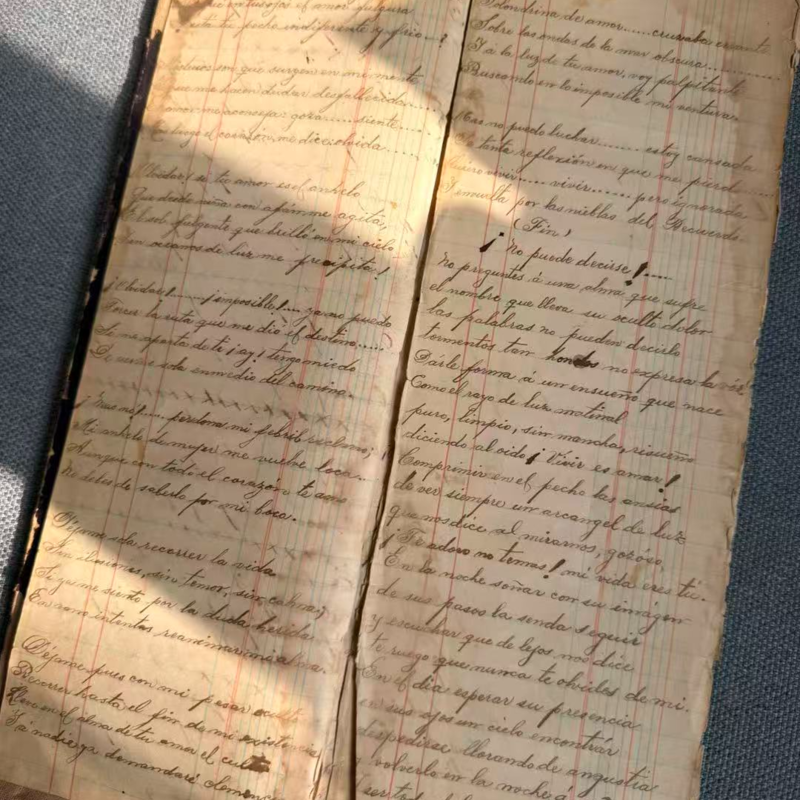 en tus ojos el amor fulgura
tu pecho indiferente y frio...?
que surgen en mi mente
Que me hacen dudar desfallecida....
me aconseja: goza..... siente....
luego el corazón me dice: olvida....
Olvidar! si tu amor es el anhelo
Que desde niña con afán me agita,
El sol fulgente que brilló en mi cielo
en oceanos de luz me precipita!
¡Olvidar!..... ¡imposible!.... ya no puedo
Torcer la ruta que me dió el destino.....
Si me aparto de ti ¡ay! tengo miedo
De verme sola en medio del camino.
¡Mas no!.... perdona mi febril reclamo;
Mi anhelo de mujer me vuelve loca...
Aunque con todo el corazon te amo
No debes de saberlo por mi boca.
Déjame sola recorrer la vida
Sin ilusiones, sin temor, sin calma;
Ya que me siento por la duda herida
En vano intentas reanimar mi alma.
Déjame pues con mi pesar oculto
Recorrer hasta el fin de mi existencia
Llevo en el alma de tu amor el culto
Y á nadie ya demandaré clemencia
Golondrina de amor..... cruzaba errante
Sobre las ondas de la mar obscura........
Y á la luz de tu amor, voy palpitante
Buscando en lo imposible mi ventura.
Mas no puedo luchar...... estoy cansada
De tanta reflexión en que me pierdo....
Quiero vivir..... vivir...... pero ignorada
Y envuelta por las nieblas del Recuerdo.
(Fin)
¡No puede decirse!.....
No preguntes á una alma que sufre
el nombre que lleva su oculto dolor
las palabras no pueden decirlo
tormentos tan hondos no expresa la voz
Darle forma á un ensueño que nace
Como el rayo de luz matinal
puro, limpio, sin mancha, risueño
diciendo al oido ¡Vivir es amar!
Comprimir en el pecho las ansias
de ver siempre un arcangel de luz
que nos dice al mirarnos, gozoso
¡Te adoro no temas! mi vida eres tú.
En la noche soñar con su imágen
de sus pasos la senda seguir
y escuchar que de lejos nos dice
te ruego que nunca te olvides de mi.
En el dia esperar su presencia
en sus ojos un cielo encontrar
despedirse llorando de angustia
y volverlo en la noche á